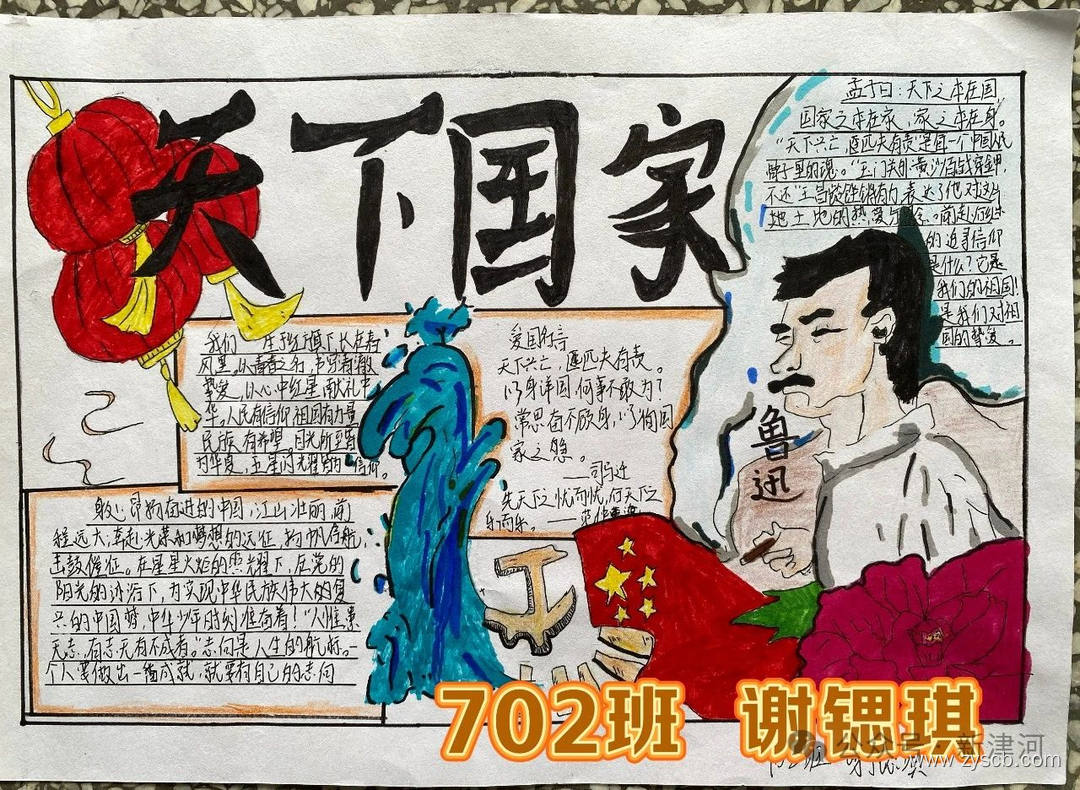 天下国家
孟子曰：天下之本在国
国家之本在家，家之本在身。
"天下兴亡，匹夫有责"是每一个中国人
骨子里的魂。"玉门关
黄沙百战穿金甲，
不还"王昌龄
有力表达了他对这片
地土地的热爱
的追寻信仰
是什么？它是
我们的祖国！
是我们对祖
国的挚爱。
我们
生于红旗下，长在春
风里。以青春之
挚爱，以心中红星，献礼中
华，人民有信仰，祖国有力量
民族有希望。目光所至皆
为华夏，五星闪耀皆为信仰。
爱国名言
天下兴亡，匹夫有责。
以身许国，何事不敢为？
常思奋不顾身，以殉国
家之急。
——司马迁
先天下之忧而忧，后天下之
乐而乐。——范仲淹
鲁迅
昂扬奋进的中国，江山壮丽，前
程远大，奔赴光荣和梦想的远征，扬帆启航，
击鼓催征。在星星火炬的照耀下，在党的
阳光的沐浴下，为实现中华民族伟大的复
兴的中国梦，中华少年时刻准备着！"人惟患
无志，有志无有不成者。"志向是人生的航标。一
个人要做出一番成就，就要有自己的志向
702班 谢锶琪
公众号·新津河
www.zyscb.com
702班 谢锶琪